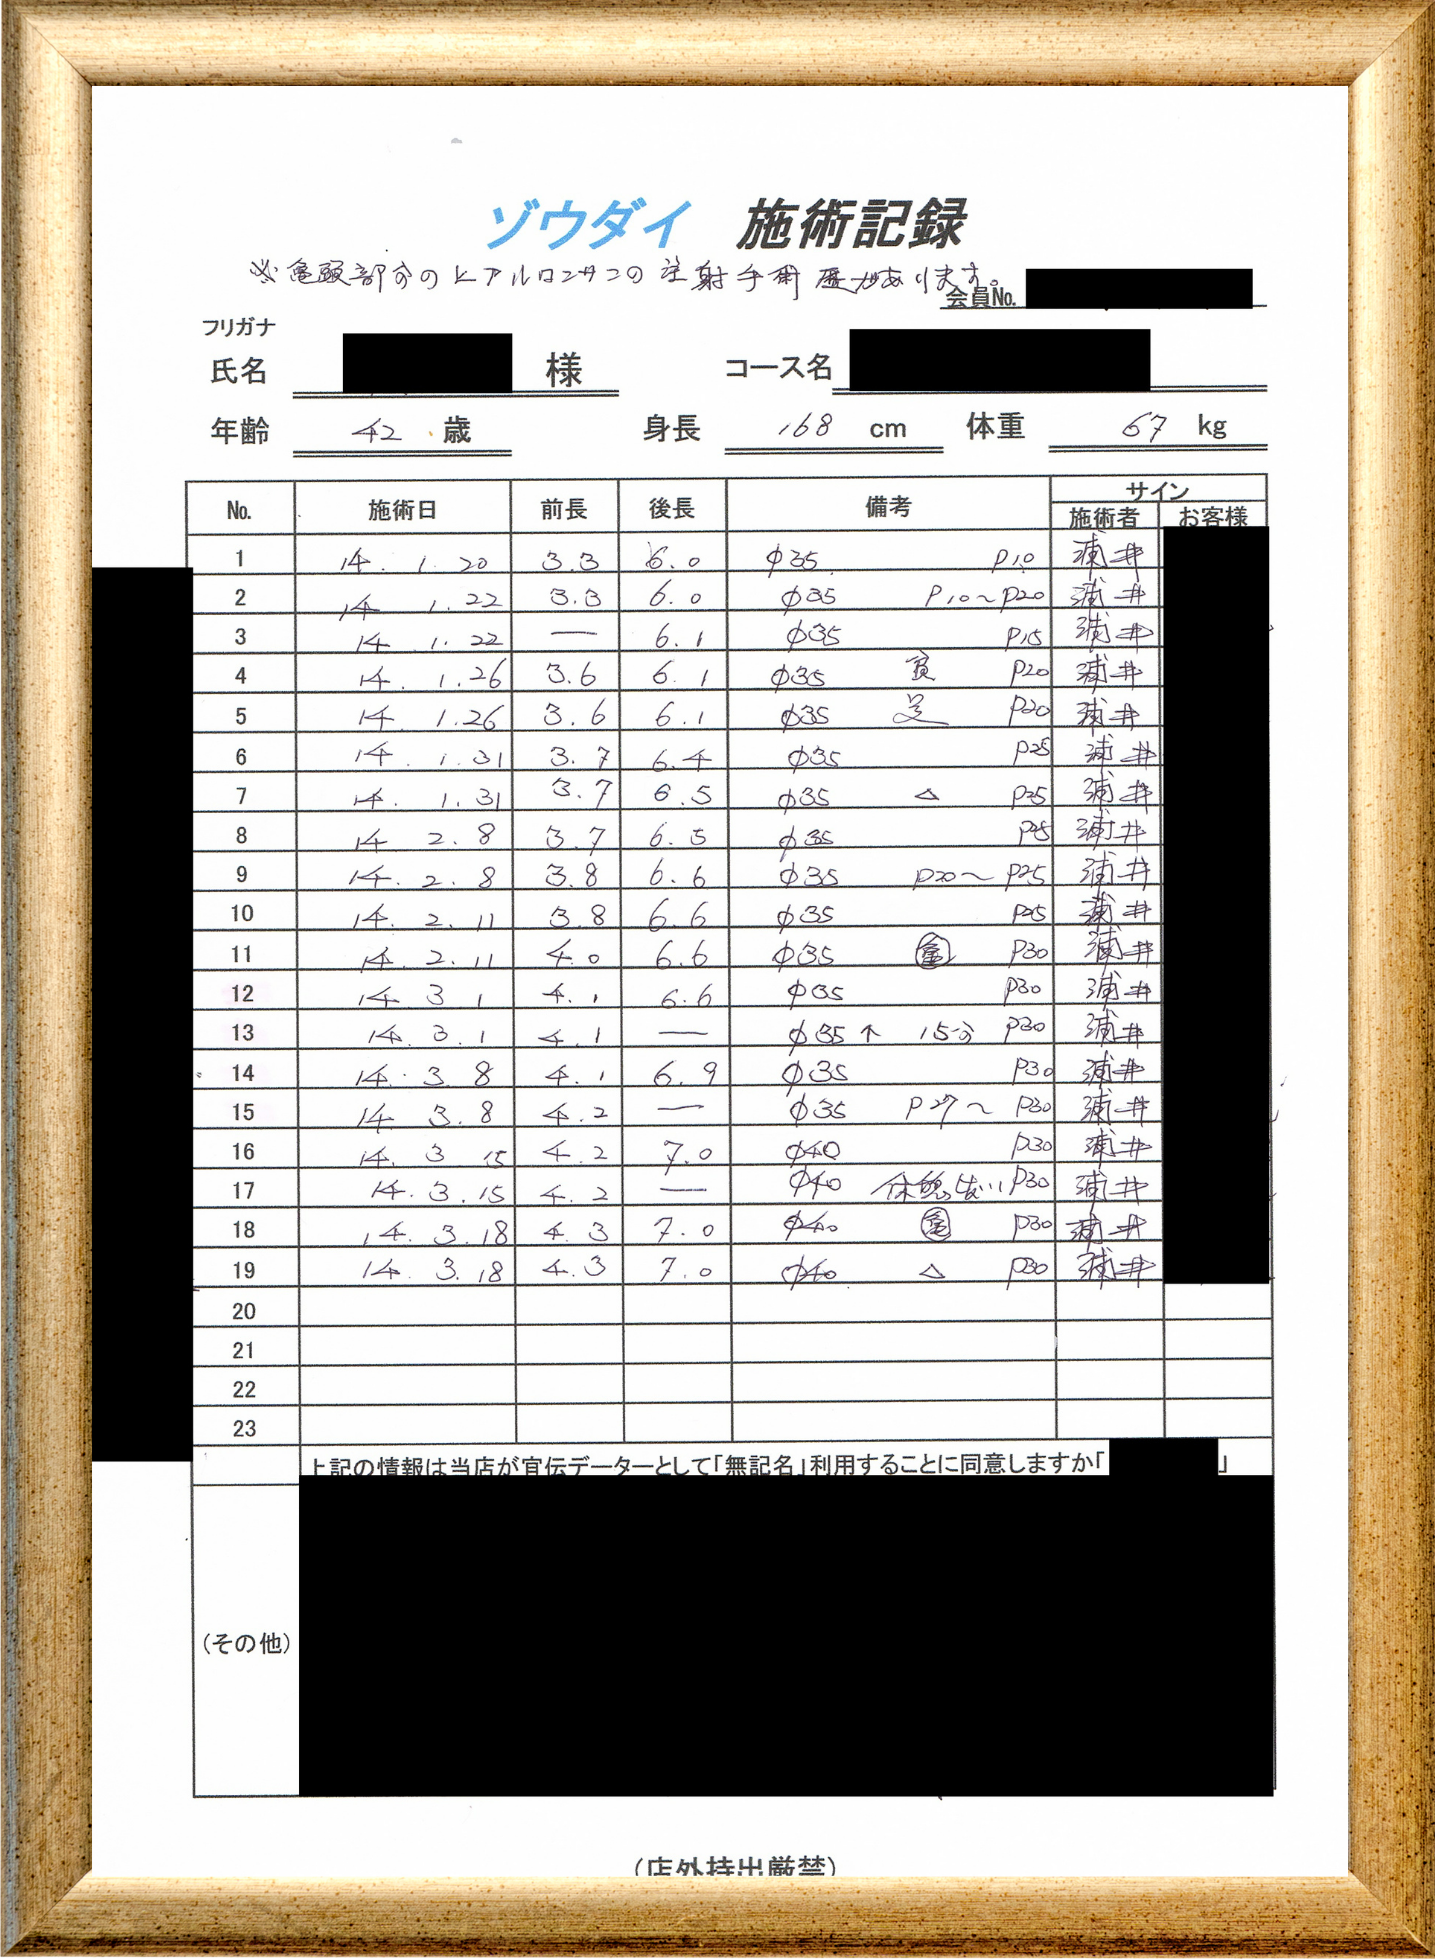 ゾウダイ 施術記録
※亀頭部分のヒアルロンサンの注射手術歴があります。
会員No.
フリガナ
氏名 様 コース名
年齢 42 歳 身長 168 cm 体重 67 kg
No. 施術日 前長 後長 備考 サイン
施術者 お客様
1 14. 1. 20 3.3 6.0 φ35 P10 浦井
2 14 1.22 3.3 6.0 φ35 P10〜P20 浦井
3 14 1.22 — 6.1 φ35 P15 浦井
4 14. 1.26 3.6 6.1 φ35 P20 浦井
5 14 1.26 3.6 6.1 φ35 P20 浦井
6 14. 1.31 3.7 6.4 φ35 P25 浦井
7 14. 1.31 3.7 6.5 φ35 △ P25 浦井
8 14 2.8 3.7 6.5 φ35 P25 浦井
9 14. 2. 8 3.8 6.6 φ35 P20〜P25 浦井
10 14. 2.11 3.8 6.6 φ35 P25 浦井
11 14. 2.11 4.0 6.6 φ35 亀 P30 浦井
12 14 3 1 4.1 6.6 φ35 P30 浦井
13 14. 3.1 4.1 — φ35↑ 15分 P30 浦井
14 14. 3 8 4.1 6.9 φ35 P30 浦井
15 14 3.8 4.2 — φ35 P27〜P30 浦井
16 14. 3 15 4.2 7.0 φ40 P30 浦井
17 14. 3.15 4.2 — φ40 休憩なし P30 浦井
18 14. 3.18 4.3 7.0 φ40 亀 P30 浦井
19 14 3.18 4.3 7.0 φ40 △ P30 浦井
20
21
22
23
上記の情報は当店が宣伝データーとして「無記名」利用することに同意しますか「 」
(その他)
(店外持出厳禁)